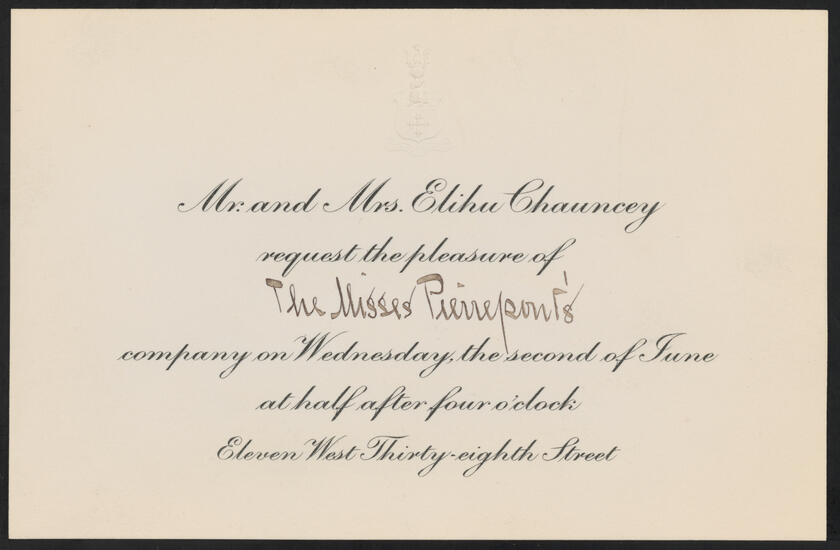 Mr. and Mrs. Elihu Chauncey
request the pleasure of
The Misses Pierrepont's
company on Wednesday, the second of June
at half after four o'clock
Eleven West Thirty-eighth Street